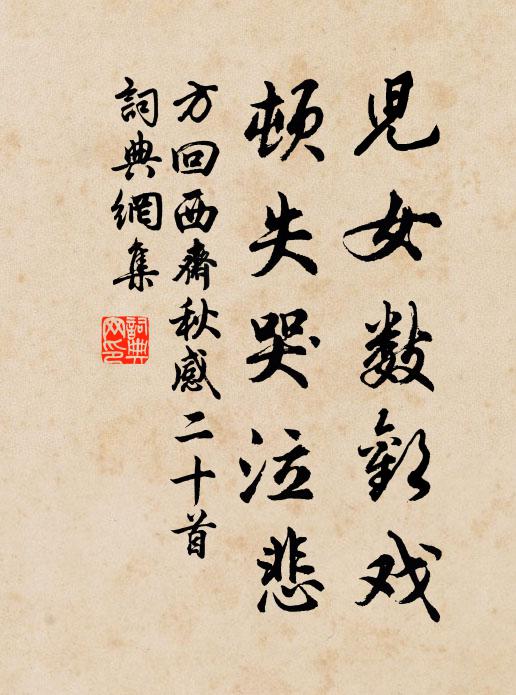 兒女數歡戏
頓失哭泣悲
方回西齋秋感二十首
詞典網集
詞典网印